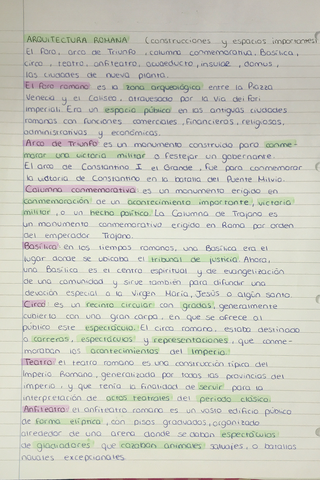 ARQUITECTURA ROMANA (construcciones y espacios importantes)
El foro, arco de Triunfo, columna conmemorativa, Basílica,
circo, teatro, anfiteatro, acueducto, insulae, domus,
las ciudades de nueva planta.
El foro romano es la zona arqueológica entre la Piazza
Venecia y el Coliseo, atravesado por la Via dei fori
imperiali. Era un espacio público en las antiguas ciudades
romanas con funciones comerciales, financieras, religiosas,
administrativas y económicas.
Arco de Triunfo es un monumento construido para conme-
morar una victoria militar o festejar un gobernante.
El arco de Constantino I el Grande, fue para conmemorar
la victoria de Constantino en la batalla del Puente Milvio.
Columna conmemorativa es un monumento erigido en
conmemoración de un acontecimiento importante, victoria
militar, o un hecho político. La Columna de Trajano es
un monumento conmemorativo erigido en Roma por orden
del emperador Trajano.
Basílica en los tiempos romanos, una Basílica era el
lugar donde se ubicaba el tribunal de justicia. Ahora,
una Basílica es el centro espiritual y de evangelización
de una comunidad y sirve también para difundir una
devoción especial a la Virgen María, Jesús o algún santo.
Circo es un recinto circular con gradas, generalmente
cubierto con una gran carpa, en que se ofrece al
público este espectáculo. El circo romano, estaba destinado
a carreras, espectáculos y representaciones, que conme-
moraban los acontecimientos del Imperio.
Teatro el teatro romano es una construcción típica del
Imperio Romano, generalizada por todas las provincias del
imperio, y que tenía la finalidad de servir para la
interpretación de actos teatrales del período clásico.
Anfiteatro el anfiteatro romano es un vasto edificio público
de forma elíptica, con pisos graduados, organizado
alrededor de una arena donde se daban espectáculos
de gladiadores que cazaban animales salvajes, o batallas
navales excepcionales.